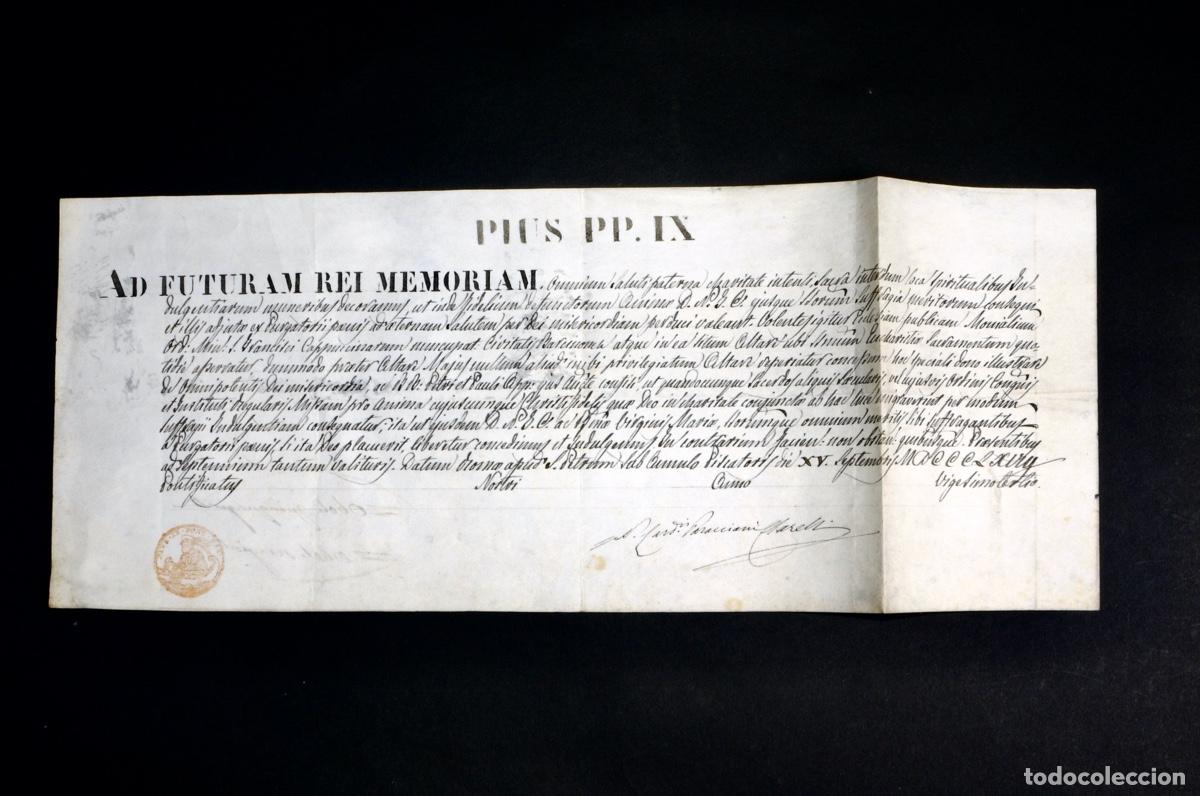 PIUS PP. IX
AD FUTURAM REI MEMORIAM. Omnium Saluti paterna charitate intenti Sacra interdum loca Spiritualibus In-
dulgentiarum muneribus decoramus, ut inde Fidelium Defunctorum Animæ D. N. J. C. ejusque Sanctorum Suffragia meritorum consequi,
et illis adjutæ ex Purgatorii pœnis ad æternam Salutem per Dei misericordiam perduci valeant. Volentes igitur Ecclesiam publicam Monialium
Ord. Min. S. Francisci Cappuccinarum nuncupat. Civitatis Barcinonen. atque in ea Situm Altare ubi SSmum Eucharistiæ Sacramentum
asservatur, dummodo præter Altare Majus nullum aliud inibi privilegiatum Altare reperiatur concessum hoc speciali dono illustrare
de Omnipotentis Dei misericordia, ac BB. Petri et Pauli App. ejus Auct. confisi, ut quandocumque Sacerdos aliquis Sæcularis, vel cujusvis Ordinis, Congnis
et Instituti Regularis Missam pro Anima cujuscumque Christifidelis quæ Deo in charitate conjuncta ab hac luce migraverit per modum
suffragii Indulgentiam consequatur, ita ut ejusdem D. N. J. C. ac Virginis Mariæ, Sanctorumque omnium meritis sibi suffragantibus
a Purgatorii pœnis, si ita Deo placuerit, liberetur concedimus et Indulgemus. In contrarium facien. non obstan. quibuscumque. Præsentibus
ad Septennium tantum valituris. Datum Romæ apud S. Petrum Sub Annulo Piscatoris die XV Septembris MDCCCLXVIII
Pontificatus Nostri Anno Vigesimotertio
Card. Paracciani Clarelli
todocoleccion